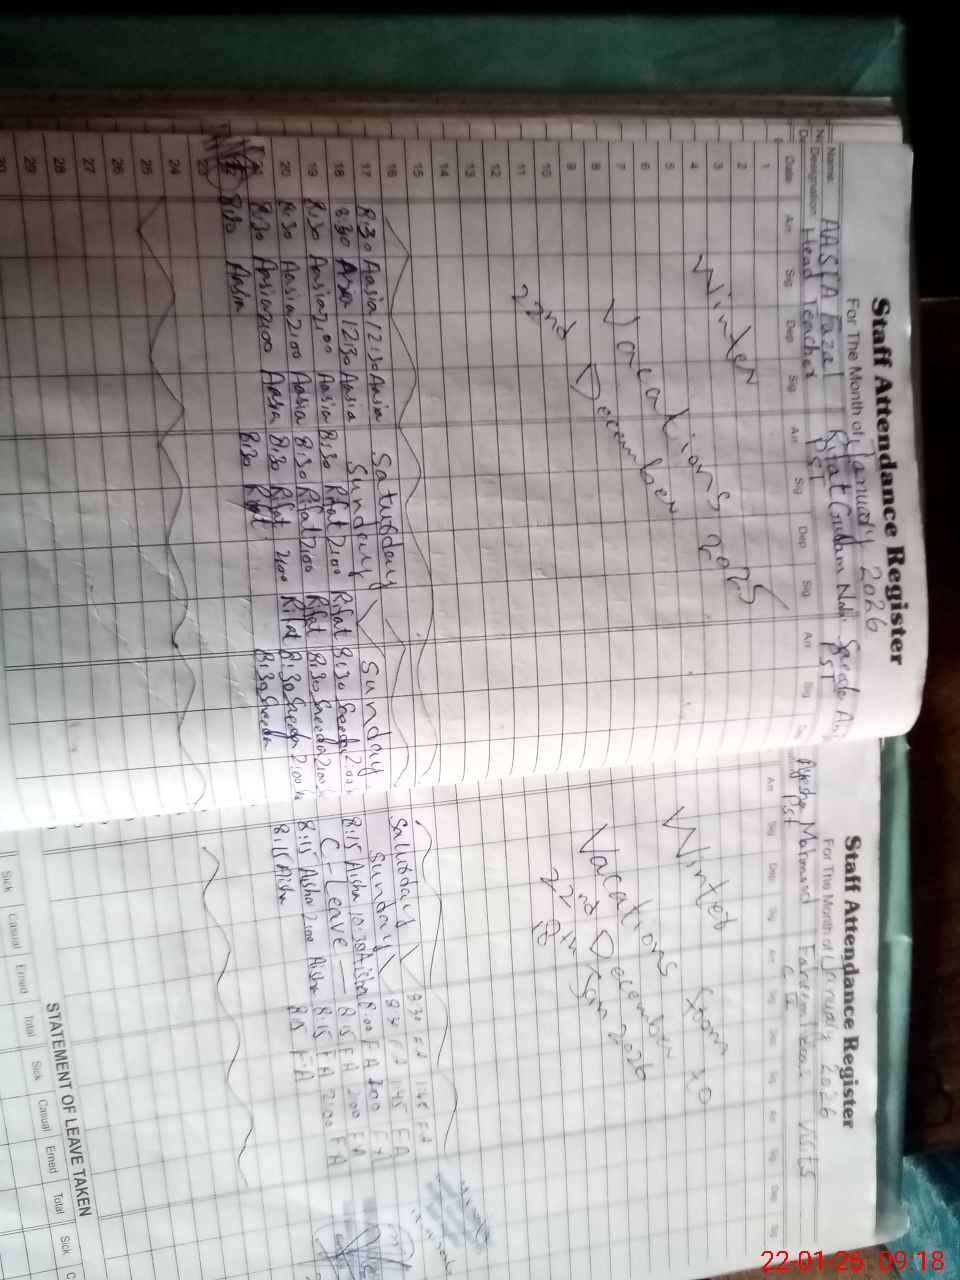 Staff Attendance Register
For The Month of January 2026
Name: AASIA Fazal Rifat Ghulam Nabi Saeeda
Designation Head Teacher PST PST
Date Arr Sig Dep Sig Arr Sig Dep Sig Arr Sig
1
2
3
4
5
6
7
8
9
10
11
12
13
14
15
Winter
Vacations 2025
22nd December
16
17 8:30 Aasia 12:30 Aasia Saturday Sunday
18 8:30 Aasia 12:30 Aasia Sunday
19 8:30 Aasia 2:00 Aasia 8:30 Rifat 2:00 Rifat 8:30 Saeeda 2:00
20 8:30 Aasia 2:00 Aasia 8:30 Rifat 2:00 Rifat 8:30 Saeeda 2:00
21 8:30 Aasia 2:00 Aasia 8:30 Rifat 2:00 Rifat 8:30 Saeeda 2:00
8:30 Aasia 8:30 Rifat 8:30 Saeeda
23
24
25
26
27
28
29
30
Staff Attendance Register
For The Month of January 2026
Ayesha Mahmood
PST
Arr Sig Dep Sig Arr Sig Dep Sig Arr Sig Dep Sig
Winter from to
Vacations
22nd December
18th Jan 2026
Saturday 8:30 FA 1:45 FA
Sunday 8:30 FA 1:45 FA
8:15 Aisha 10:30 Aisha 8:00 FA 2:00 FA
C-Leave 8:15 FA 2:00 FA
8:15 Aisha 2:00 Aisha 8:15 FA 2:00 FA
8:15 Aisha 8:15 FA
STATEMENT OF LEAVE TAKEN
Sick Casual Erned Total Sick Casual Erned Total Sick
22-01-26 09:18